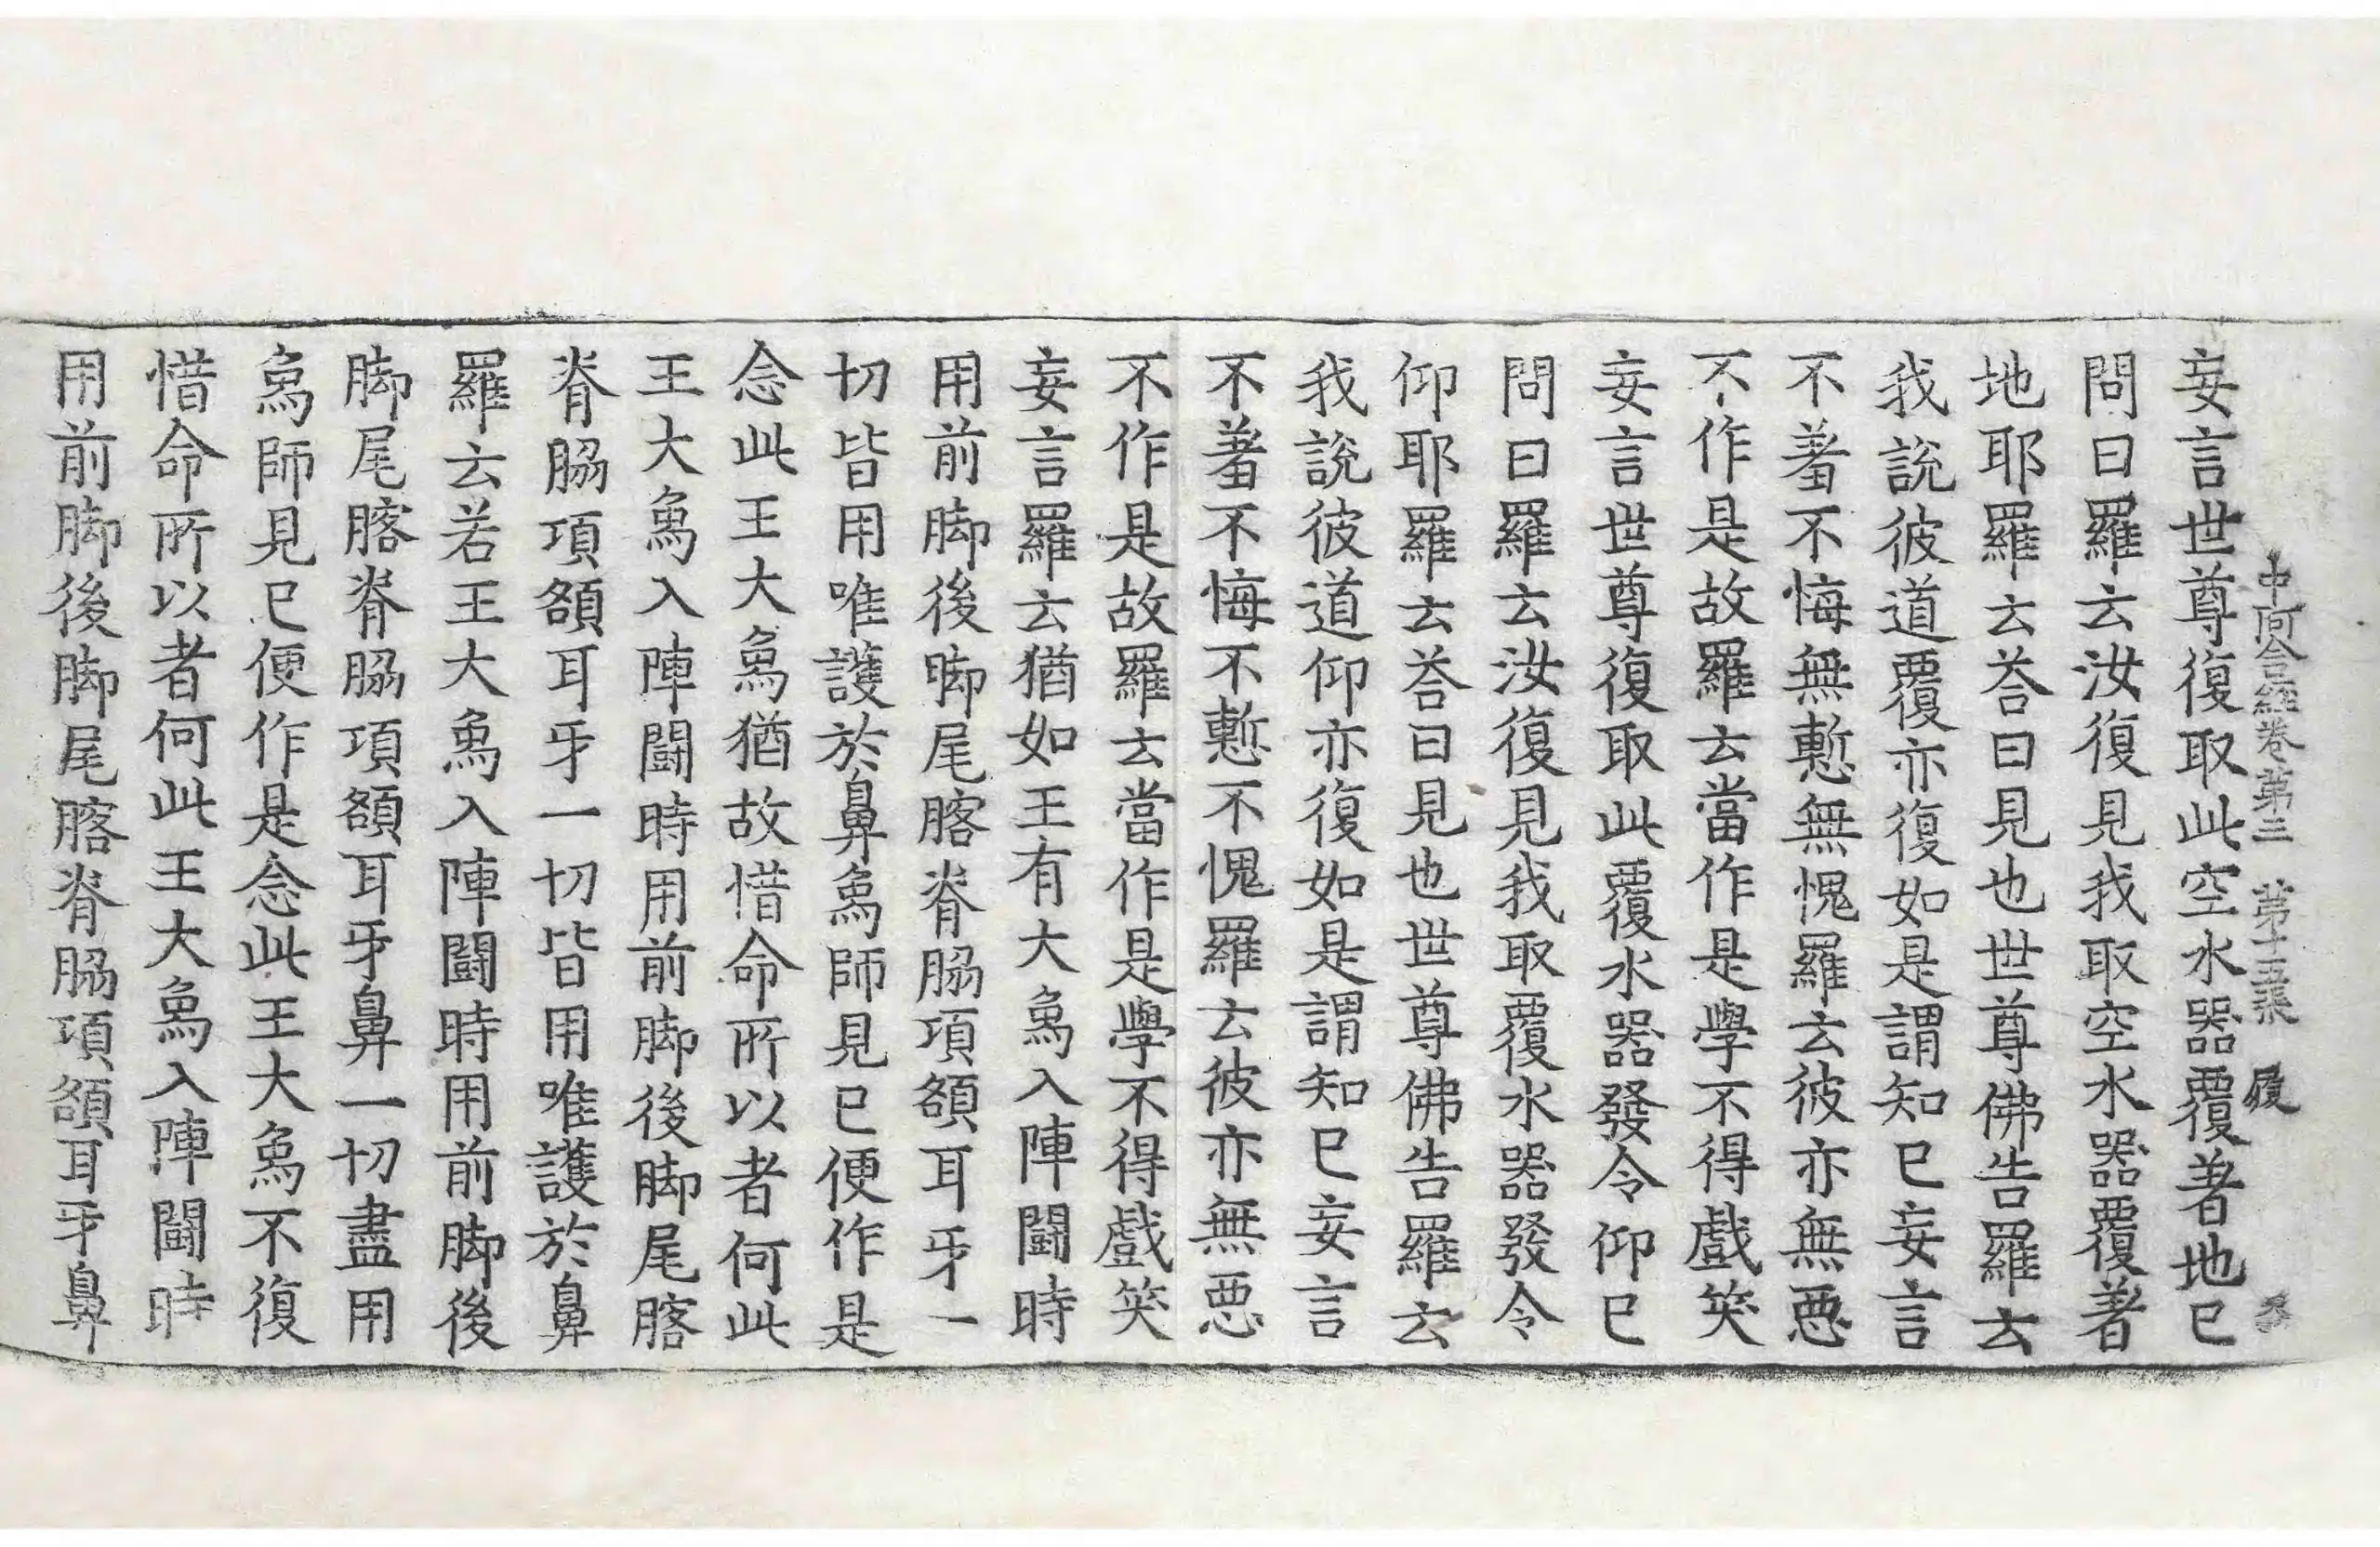 中阿含經卷第三 第十五張 履
妄言世尊復取此空水器覆著地已
問曰羅云汝復見我取空水器覆著
地耶羅云荅曰見也世尊佛告羅云
我說彼道覆亦復如是謂知已妄言
不羞不悔無慙無愧羅云彼亦無惡
不作是故羅云當作是學不得戲笑
妄言世尊復取此覆水器發令仰已
問曰羅云汝復見我取覆水器發令
仰耶羅云荅曰見也世尊佛告羅云
我說彼道仰亦復如是謂知已妄言
不羞不悔不慙不愧羅云彼亦無惡
不作是故羅云當作是學不得戲笑
妄言羅云猶如王有大象入陣鬪時
用前脚後脚尾髂脊脇項額耳牙一
切皆用唯護於鼻象師見已便作是
念此王大象猶故惜命所以者何此
王大象入陣鬪時用前脚後脚尾髂
脊脇項額耳牙一切皆用唯護於鼻
羅云若王大象入陣鬪時用前脚後
脚尾髂脊脇項額耳牙鼻一切盡用
象師見已便作是念此王大象不復
惜命所以者何此王大象入陣鬪時
用前脚後脚尾髂脊脇項額耳牙鼻